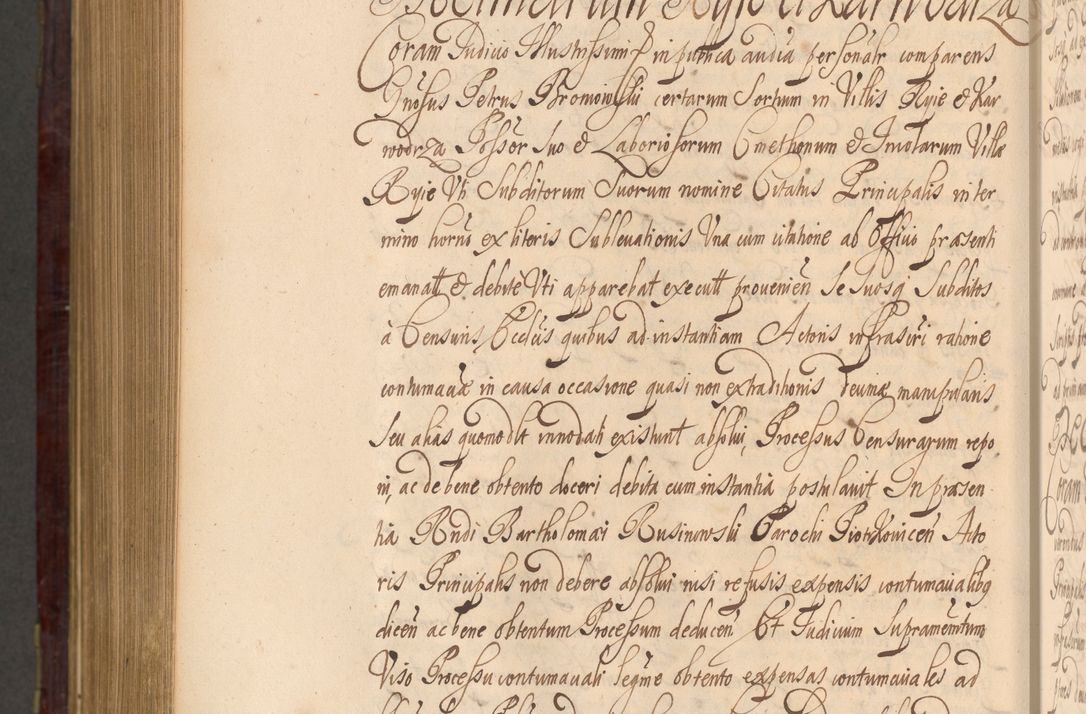 Coram Judicio Illustrissimi & in publica audia personalr comparens
Gnosus Petrus Bromowski certarum Sortium in Villis Ryie & Kar
wodrza Possor suo & Laboriosorum Cmethonum & Inotarum Villæ
Ryie Uti Subditorum Suorum nomine Citatus Principalis in ter
mino horno ex literis Sublevationis Una cum citatione ab Officio præsenti
emanatt & debite Uti apparebat executt provenien Se Suosq Subditos
à Censuris Ecclcis quibus ad instantiam Actoris infrascri ratione
contumaciæ in causa occasione quasi non extraditionis decimæ manipularis
Seu alias quomodlt innodati existunt absolvi, Processus Censurarum repo
ni, ac de bene obtento doceri debita cum instantia postulavit In præsen
tia Rndi Bartholomæi Rusinowski Parochi Piotrkovicen Acto
ris Principalis non debere absolvi nisi refusis expensis contumacialibq
dicen ac bene obtentum Processum deducen Et Judicium Supramemtum
Viso Processu contumaciali legme obtento expensas contumaciales ad